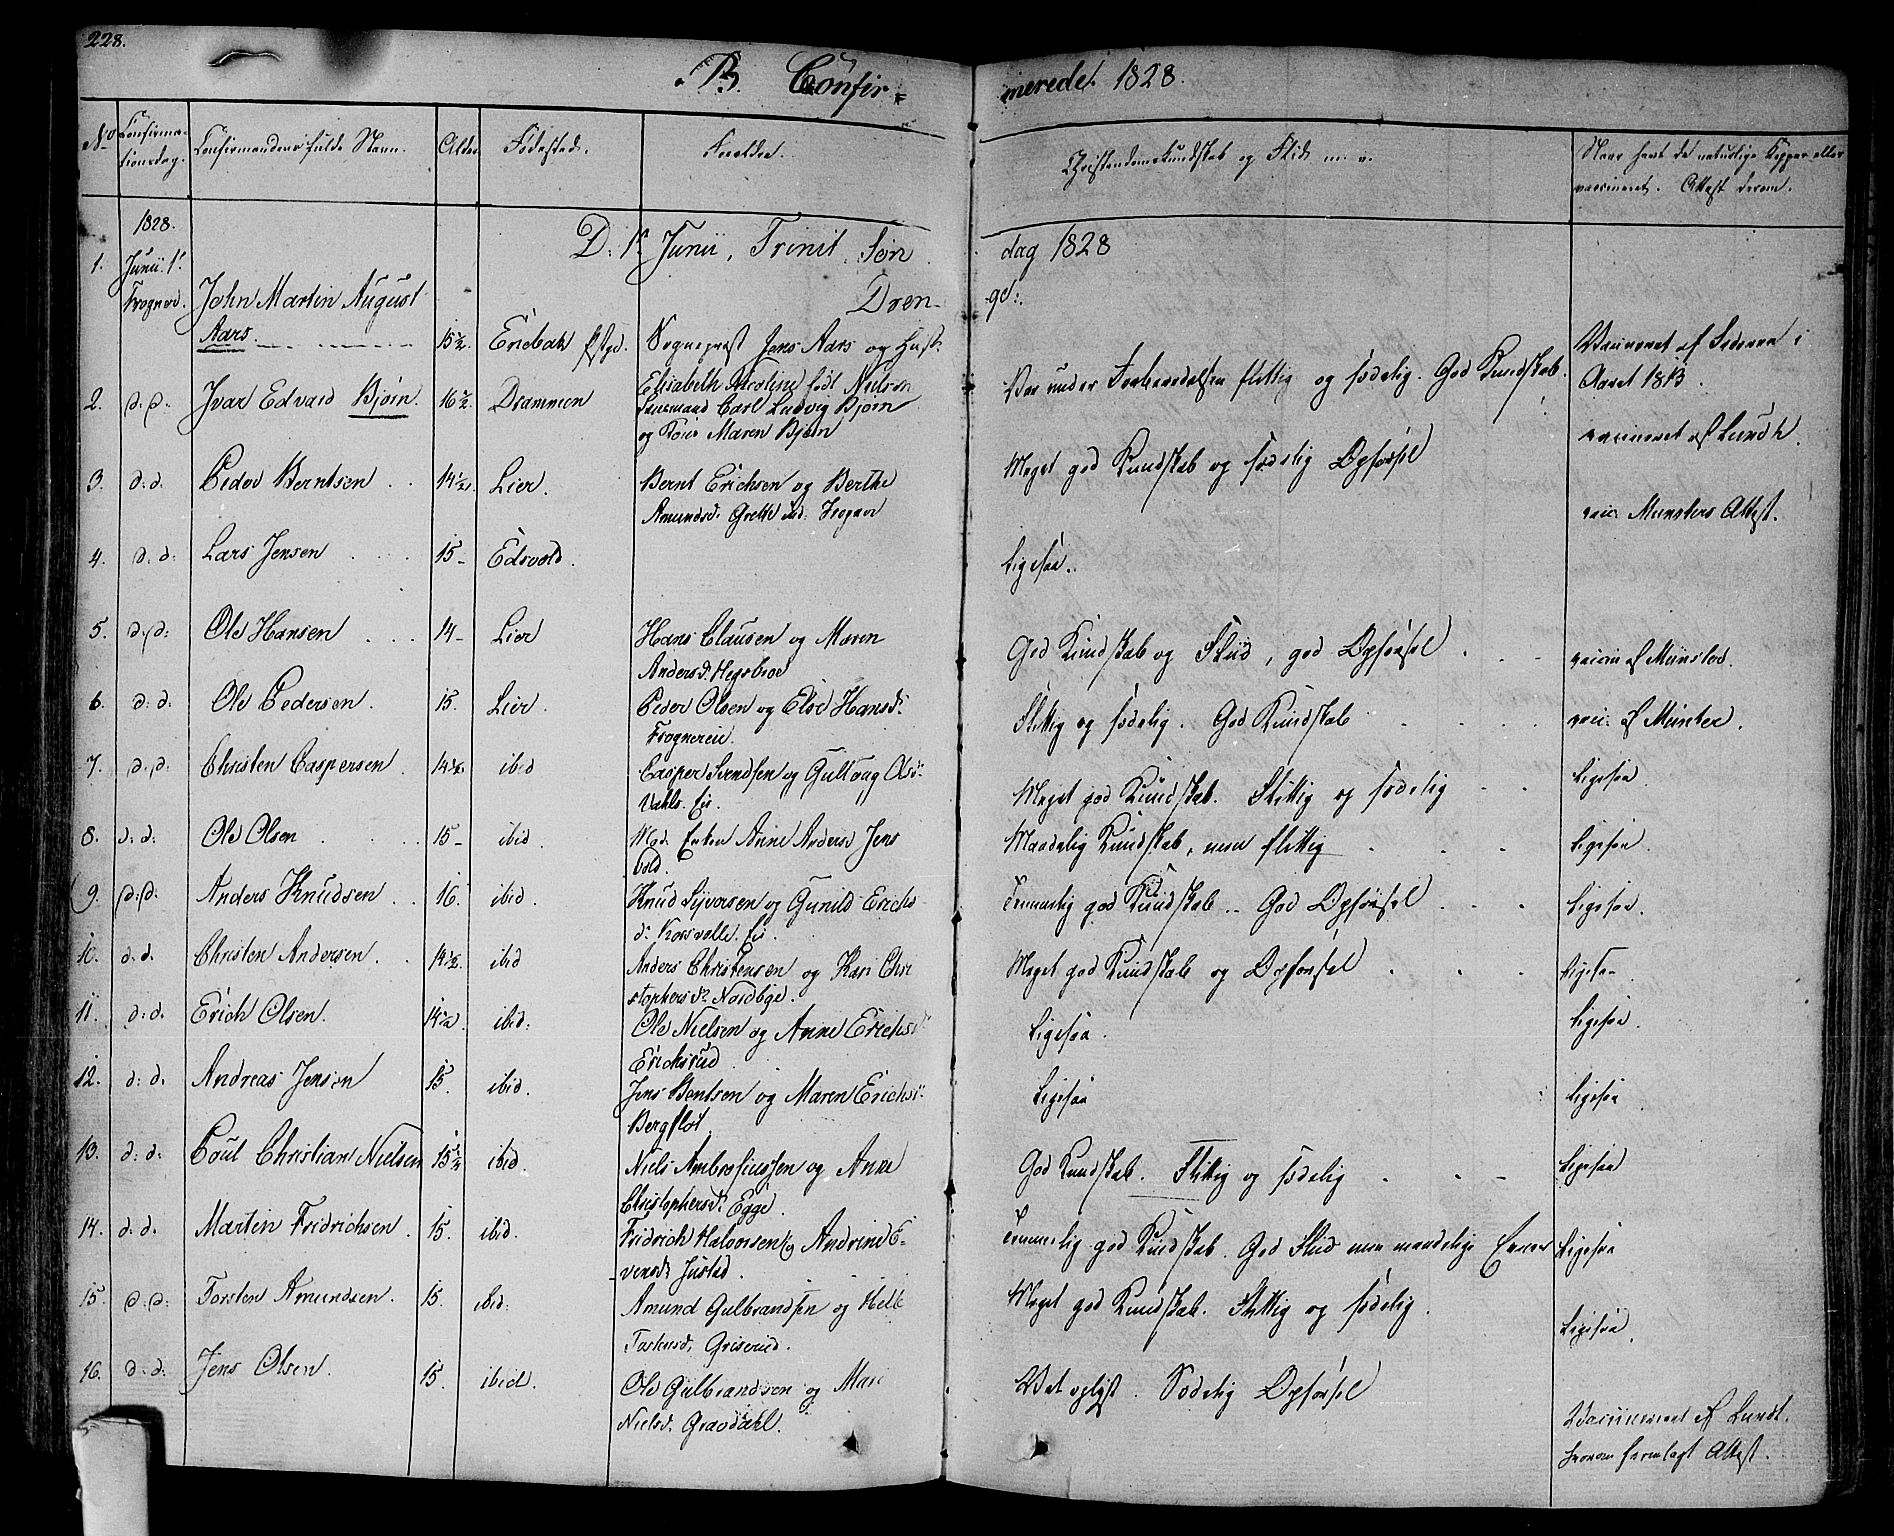 228.
B. Confir=
merede 1828.
No Confirma-tionsdag. Confirmandens fulde Navn. Alder Fødested. Forældre. Christendomskundskab og Flid m. v. Naar havt de naturlige Kopper eller vaccineret. Attest derom.
1828.
D. 1e Junii, Trinit. Søn
dag 1828
Dren-
ge:
1. Junii 1e. Frogner. John Martin August
Aars. 15½ Enebak Præstgd. Sognepræst Jens Aars og Hust.
Elisabeth Nicoline født Nielson
Var under Forberedelsen flittig og sædelig. God Kundskab.
Vaccineret af Sidenen i
Aaret 1813.
2. d. d. Ivar Edvard Bjørn. 16½ Drammen Carl Ludvig Bjørn
og Maren Bjørn
Meget god Kundskab og sædelig Opførsel
vaccineret af Lundt.
3. d. d. Peder Berntsen 14½ Lier. Bernt Erichsen og Berthe
Amundsd. Grette
Ligesaa.
vacc. Munsters Attest.
4. d. d. Lars Jensen 15 - Edsvold.
5. d. d. Ole Hansen 14 - Lier Hans Clausen og Maren
Andersd. Hegsbroe
God Kundskab og Flid, god Opførsel
vaccin. af Münster.
6. d. d. Ole Pedersen. 15. Lier. Peder Olsen og Else Hansd.
Frognereie.
Flittig og sædelig. God Kundskab
vacc. af Münster.
7. d. d. Christen Caspersen. 14½ ibid Casper Svendsen og Guldvaag Olsd.
Vahls. Ei.
Meget god Kundskab. Flittig og sædelig
Ligesaa.
8. d. d. Ole Olsen 15 - ibid. Mod. Enken Anne Anders. Jens
vold.
Maadelig Kundskab, men flittig
Ligesaa.
9. d. d. Anders Knudsen 16. ibid. Knud Syversen og Gunild Erichs
d. Ei.
Temmelig god Kundskab. God Opførsel
Ligesaa.
10. d. d. Christen Andersen 14½ ibid Anders Christensen og Kari Chri
stophersd. Nordbye.
Meget god Kundskab og Opførsel
Ligesaa
11. d. d. Erich Olsen. 14½. ibid. Ole Nielsen og Anne Erichsd.
Erichsrud
Ligesaa.
Ligesaa.
12. d. d. Andreas Jensen 15. ibid. Jens Bentsen og Maren Erichsd.
Bergfløt.
Ligesaa
Ligesaa
13. d. d. Poul Christian Nielsen 15½ ibid. Niels Ambrosiussen og Anne
Christophersd. Egge.
God Kundskab. Flittig og sædelig
Ligesaa
14. d. d. Martin Fridrichsen. 15. ibid. Fridrich Halvorsen og Andrine E-
vensd. Justad.
Temmelig god Kundskab. God Flid men maadelige Evner
Ligesaa
15. d. d. Torsten Amundsen. 15. ibid. Amund Gulbrandsen og Helle
Torstensd. Griserud.
Meget god Kundskab. Flittig og sædelig.
Ligesaa.
16. d. d. Jens Olsen. 15. ibid. Ole Gulbrandsen og Mari
Nielsd. Gravdahl.
Vel oplyst. Sædelig Opførsel
Vaccineret af Lundt.
hvorom fremlagt Attest.